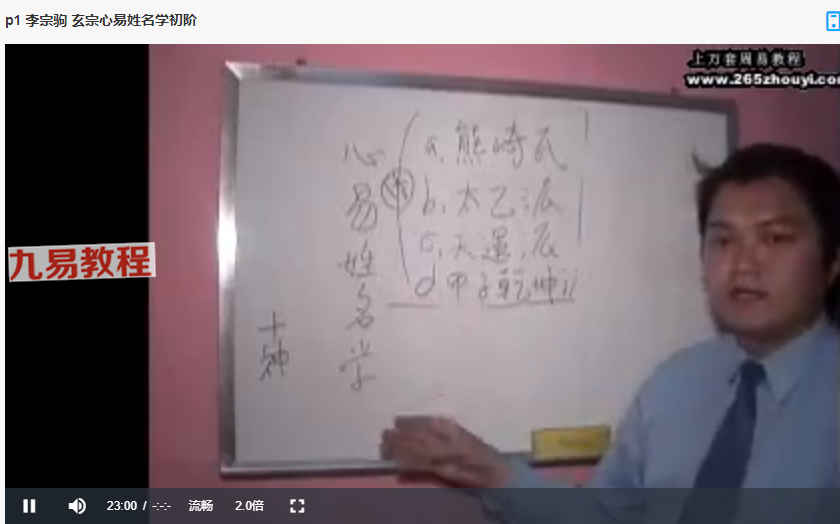 p1 李宗驹 玄宗心易姓名学初阶
上万套周易教程
www.265zhouyi.co
九易教程
心易姓名学
a. 熊崎氏
b. 太乙派
c. 天運派
d 甲子乾坤
十神
23:00 / -:-:-
流畅
2.0倍